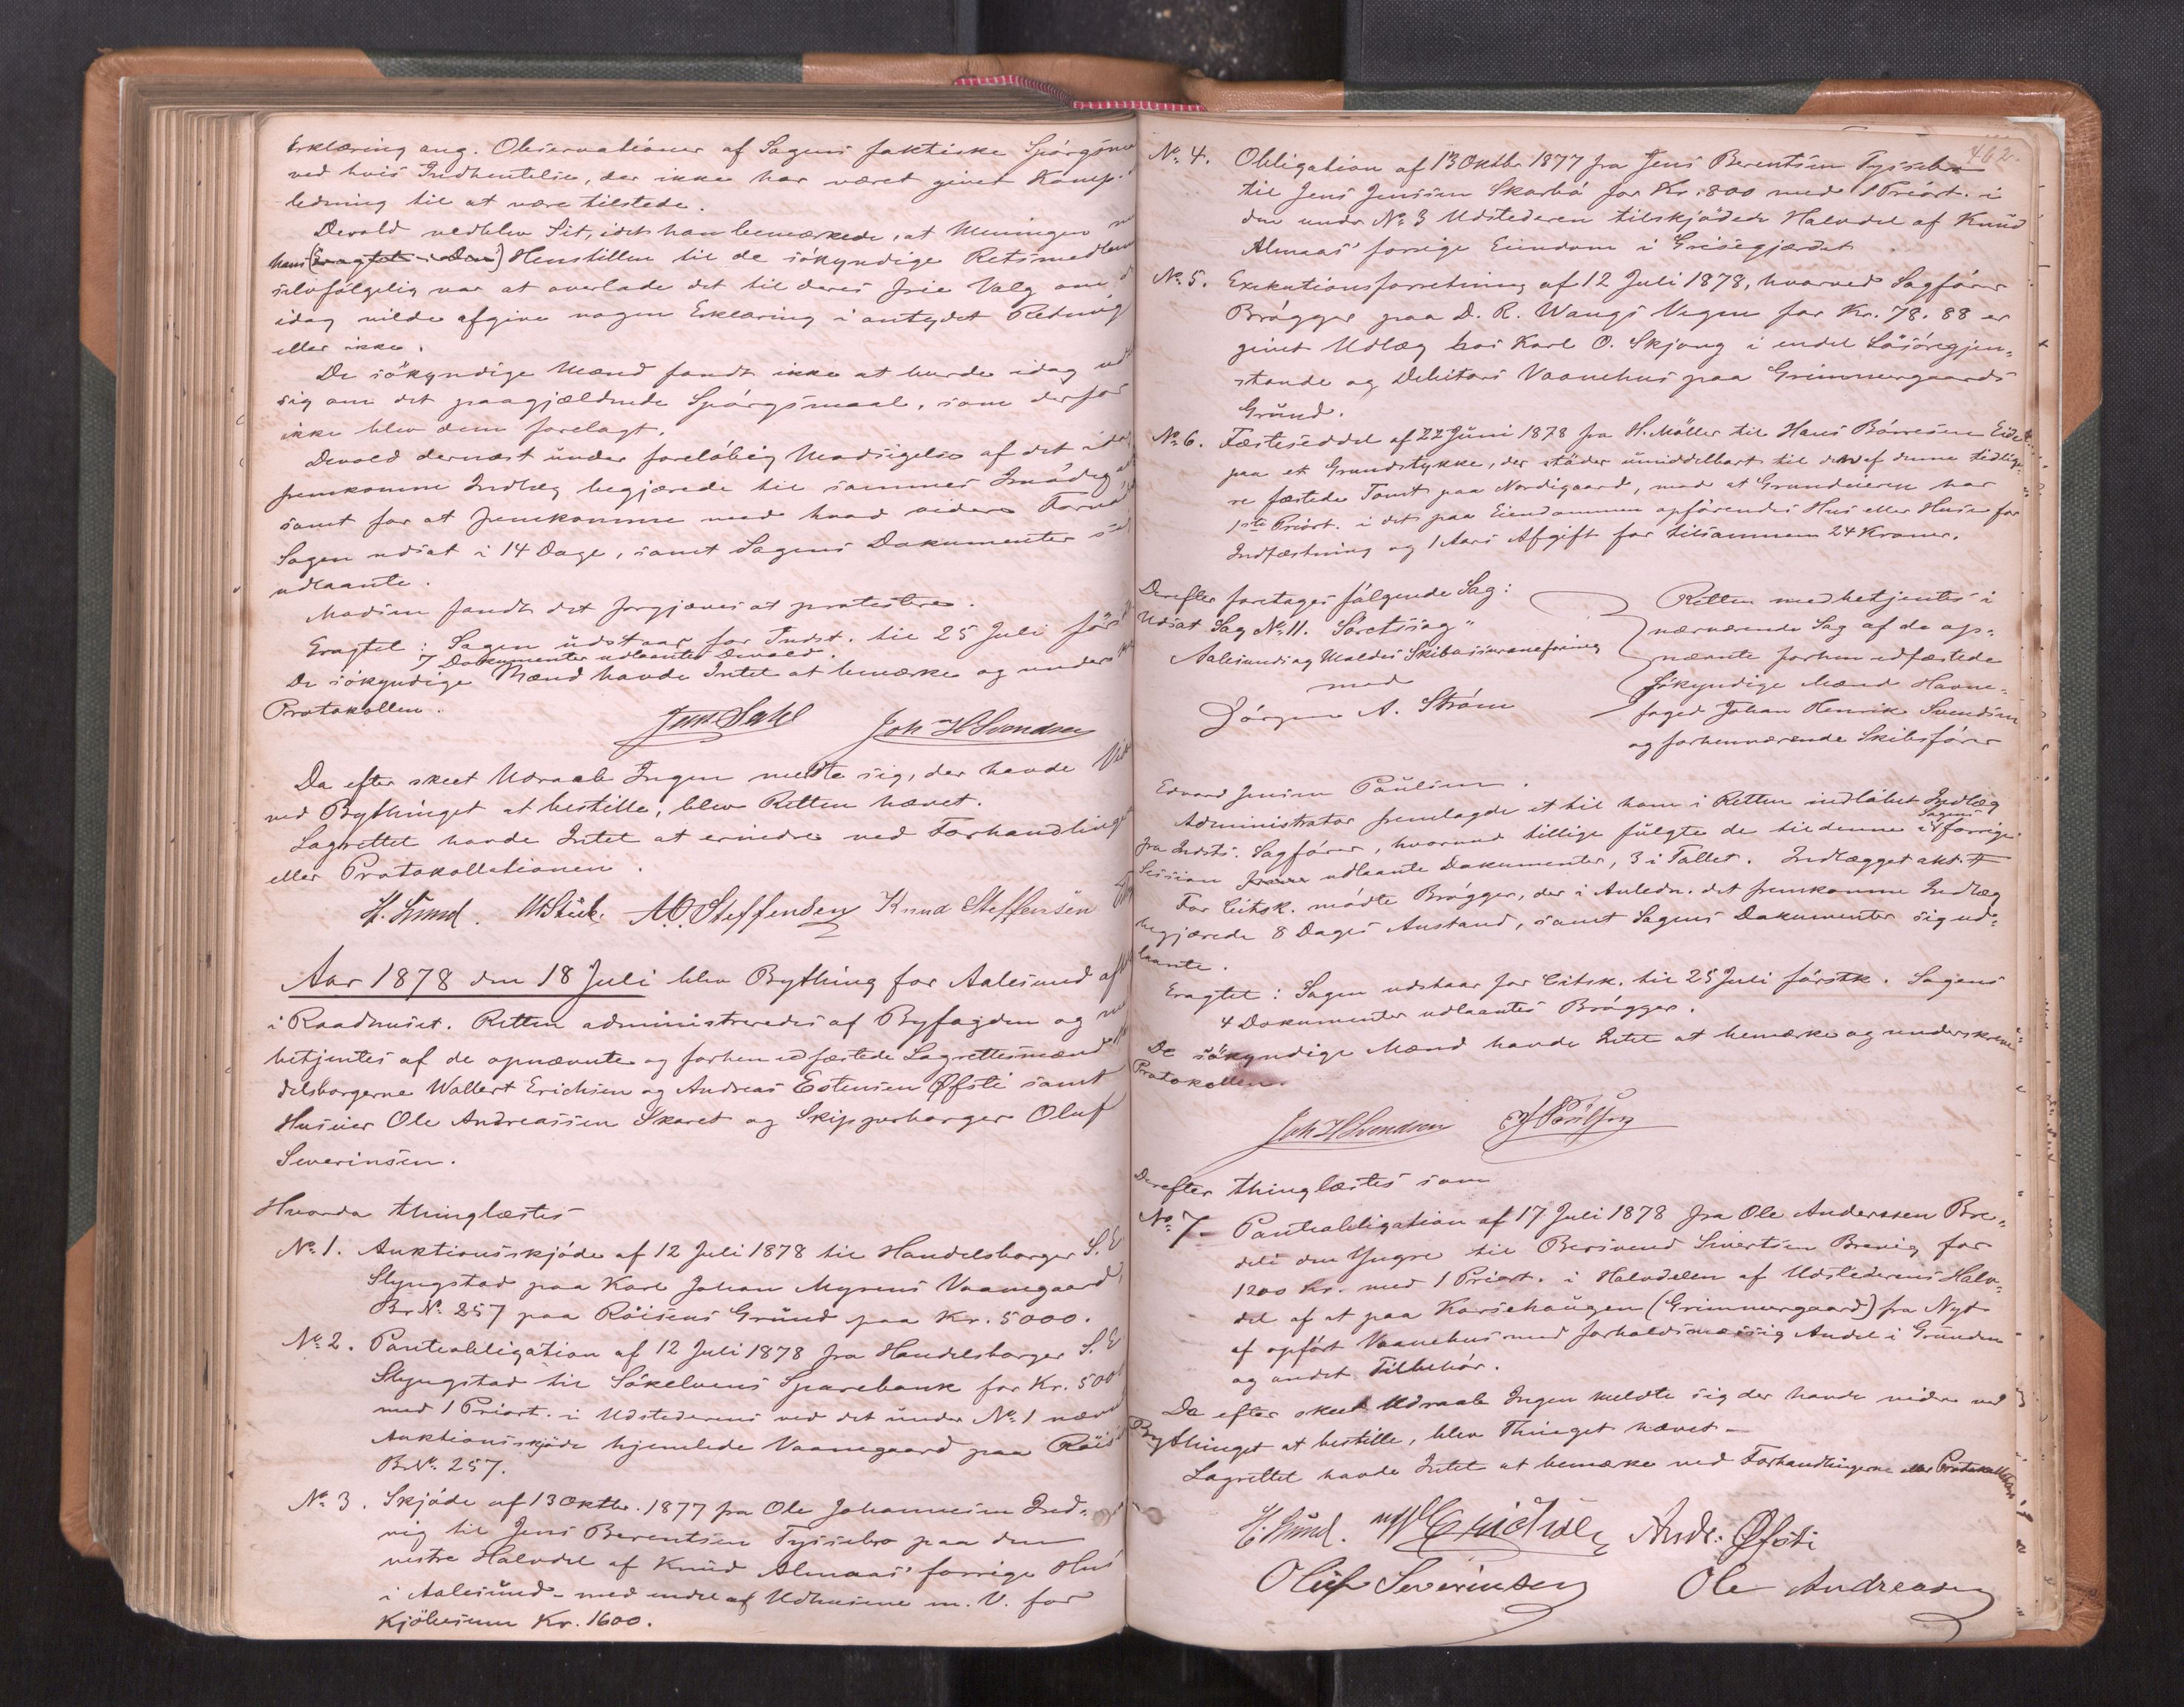 Erklæring ang. Observationer af Sagens faktiske
ved hvis Indhentelse, der ikke har været givet Komp.
ledning til at være tilstede.
Devold vedblev Sit, idet han bemærkede, at Meningen
hans (Eragtet i Den) Henstillen til de sökyndige
selvfölgelig var at overlade det til deres frie Valg om
idag vilde afgive nogen Erklæring i antydet Retning
eller ikke.
De sökyndige Mænd fandt ikke at burde idag
sig om det paagjældende Spörgsmaal, som derfor
ikke blev dem forelagt.
Devold dernæst under foreløbig Modsigelse af det
fremkomne Indlæg begjærede til sammes
samt for at fremkomme med hvad videre
Sagen udsat i 14 Dage, samt Sagens Dokumenter
udlaante.
Madsen fandt det forgjæves at protestere.
Eragtet: Sagen udstaar for Indst. til 25 Juli
7 Dokumenter udlaantes Devold.
De sökyndige Mænd havde Intet at bemærke og
Protokollen.
Jens Dahl Joh H Svendsen
Da efter skeet Udraab Ingen meldte sig, der havde
ved Bythinget at bestille, blev Retten hævet.
Lagrettet havde Intet at erindre ved
eller Protokollationen.
H. Lund. M. Steffensen Knud Steffensen
Aar 1878 den 18 Juli blev Bything for Aalesund
i Raadhuset. Retten administreredes af Byfogden og
betjentes af de opnævnte og forhen edfæstede Lagrettesmænd
delsborgerne Wallert Erichsen og Andreas Estensen Øfsti samt
Huseier Ole Andreassen Skaret og Skipperborger Oluf
Severinsen.
Hvorda thinglæstes
No. 1. Auktionsskjöde af 12 Juli 1878 til Handelsborger S. E
Slyngstad paa Karl Johan Myrens Vaanegaard
Br No. 257 paa Röisens Grund paa Kr. 5000.
No. 2. Panteobligation af 12 Juli 1878 fra Handelsborger S. E
Slyngstad til Sökelvens Sparebank for Kr.
med 1 Priort. i Udstederens ved det under No. 1
Auktionsskjöde hjemlede Vaanegaard paa
Br No. 257.
No. 3. Skjöde af 13 Oktbr. 1877 fra Ole Johannesen Ind-
vig til Jens Berentsen Tyssebro paa den
vestre Halvdel af Knud Almaas' forrige Hus
i Aalesund - med endel af Udhusene m. V. for
Kjöbesum Kr. 1600.
462.
No. 4. Obligation af 13 Oktbr 1877 fra Jens Berentsen Tyssebro
til Jens Jenssen Skarbö for Kr. 800 med 1 Priort. i
den under No. 3 Udstederen tilskjödede Halvdel af Knud
Almaas' forrige Eiendom i Grisegjærdet.
No. 5. Exekutionsforretning af 12 Juli 1878, hvorved Sagförer
Brögger paa D. R. Wangs Vegne for Kr. 78.88 er
givet Udlæg hos Karl O. Skjong i endel Lösöregjen-
stande og Debitors Vaanehus paa Grimmergaards
Grund.
No. 6. Fæsteseddel af 22 Juni 1878 fra H. Möller til Hans Börresen Eide
paa et Grundstykke, der stöder umiddelbart til den af denne tidlige-
re fæstede Tomt paa Nordigaard, mod at Grundeieren har
1ste Priort. i det paa Eiendommen opförendes Hus eller Huse for
Indfæstning og 1 Aars Afgift for tilsammen 24 Kroner.
Derefter foretoges fölgende Sag:
Udsat Sag No. 11. Söretssag"
Aalesunds og Moldes Skibsassuranceforening
mod
Jörgen A. Ström
Retten medbetjentes i
nærværende Sag af de op-
nævnte forhen edfæstede
sökyndige Mænd Havne-
foged Johan Henrik Svendsen
og forhenværende Skibsförer
Edvard Jensen Paulsen.
Administrator fremlagde et til ham i Retten indløbet Indlæg
fra Indsts. Sagförer, hvormed tillige fulgte de til denne i Sagens forrige
Session udlaante Dokumenter, 3 i Tallet. Indlægget akt.
For Citsk. mödte Brögger, der i Anledn. det fremkomne Indlæg
begjærede 8 Dages Anstand, samt Sagens Dokumenter sig ud-
laante.
Eragtet: Sagen udstaar for Citsk. til 25 Juli förstk. Sagens
4 Dokumenter udlaantes Brögger.
De sökyndige Mænd havde Intet at bemærke og underskrev
Protokollen.
Joh H Svendsen
Derefter thinglæstes som
No. 7. Panteobligation af 17 Juli 1878 fra Ole Anderssen Bre-
deli den Yngre til Bersvend Sivertsen Brevig for
1200 Kr. med 1 Priort. i Halvdelen af Udstederens Halv-
del af et paa Korsehaugen (Grimmergaard) fra Nyt
af opfört Vaanehus med forholdsmæssig Andel i Grunden
og andet Tilbehör.
Da efter skeet Udraab Ingen meldte sig der havde videre ved
Bythinget at bestille, blev Thinget hævet.
Lagrettet havde Intet at bemærke ved Forhandlingerne eller Protokollationen
H. Lund. W Erichsen Andr. Øfsti
Oluf Severinsen Ole Andreasen